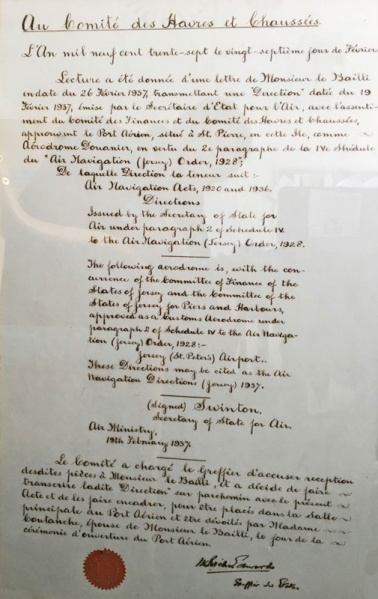 Au Comité des Havres et Chaussées.
L'An mil neuf cent trente-sept le vingt-septième jour de Février
Lecture a été donnée d'une lettre de Monsieur le Bailli
en date du 26 Février 1937, transmettant une "Direction" datée du 19
Février 1937, émise par le Secrétaire d'Etat pour l'Air, avec l'assenti-
ment du Comité des Finances et du Comité des Havres et Chaussées,
approuvant le Port Aérien, situé à St. Pierre, en cette Ile, comme
Aérodrome Douanier, en vertu du 2e paragraphe de la IVe Shédule
du "Air Navigation (Jersey) Order, 1928";
De laquelle Direction la teneur suit :-
Air Navigation Acts, 1920 and 1936.
Directions
Issued by the Secretary of State for
Air under paragraph 2 of Schedule IV
to the Air Navigation (Jersey) Order, 1928.
The following aerodrome is, with the con-
currence of the Committee of Finance of the
States of Jersey and the Committee of the
States of Jersey for Piers and Harbours,
approved as a Customs Aerodrome under
paragraph 2 of Schedule IV to the Air Naviga-
tion (Jersey) Order, 1928:-
Jersey (St. Peter's) Airport..
These Directions may be cited as the Air
Navigation Directions (Jersey) 1937.
(Signed) Swinton,
Secretary of State for Air.
Air Ministry,
19th February 1937.
Le Comité a chargé le Greffier d'accuser réception
desdites pièces à Monsieur le Bailli, et a décidé de faire
transcrire ladite "Direction" sur parchemin avec le présent
Acte et de les faire encadrer, pour être placés dans la Salle
principale du Port Aérien et être dévoilés par Madame
Coutanche, épouse de Monsieur le Bailli, le jour de la
cérémonie d'ouverture du Port Aérien.
Greffier des Etats.